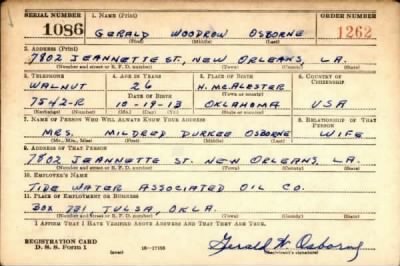 SERIAL NUMBER 1. NAME (Print) ORDER NUMBER
1086 GERALD WOODROW OSBORNE 1262
(First) (Middle) (Last)
2. ADDRESS (Print)
7802 JEANNETTE ST., NEW ORLEANS, LA.
(Number and street or R. F. D. number) (Town) (County) (State)
3. TELEPHONE 4. AGE IN YEARS 5. PLACE OF BIRTH 6. COUNTRY OF CITIZENSHIP
WALNUT 26 N. MCALESTER
DATE OF BIRTH (Town or county)
7542-R 10-19-13 OKLAHOMA USA
(Exchange) (Number) (Mo.) (Day) (Yr.) (State or country)
7. NAME OF PERSON WHO WILL ALWAYS KNOW YOUR ADDRESS 8. RELATIONSHIP OF THAT PERSON
MRS. MILDRED DURKEE OSBORNE WIFE
(Mr., Mrs., Miss) (First) (Middle) (Last)
9. ADDRESS OF THAT PERSON
7802 JEANNETTE ST. NEW ORLEANS, LA.
(Number and street or R. F. D. number) (Town) (County) (State)
10. EMPLOYER'S NAME
TIDE WATER ASSOCIATED OIL CO.
11. PLACE OF EMPLOYMENT OR BUSINESS
BOX 731 TULSA, OKLA.
(Number and street or R. F. D. number) (Town) (County) (State)
I AFFIRM THAT I HAVE VERIFIED ABOVE ANSWERS AND THAT THEY ARE TRUE.
REGISTRATION CARD
D. S. S. Form 1 (over) 16-17105 Gerald W. Osborne
(Registrant's signature)